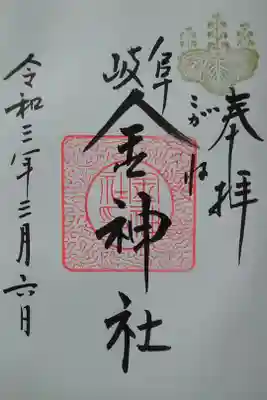 奉拝
こがね
岐阜
金神社
令和三年三月六日